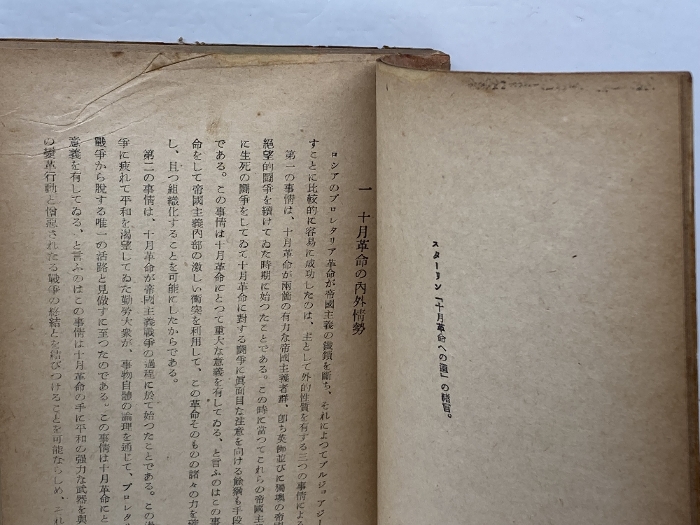 スターリン「十月革命への道」の緒言。
一 十月革命の內外情勢
ロシアのプロレタリア革命が帝國主義の鐵鎖を斷ち、それによつてブルジョアジー
すことに比較的に容易に成功したのは、主として外的性質を有する三つの事情による
第一の事情は、十月革命が兩箇の有力な帝國主義者群、卽ち英佛並びに獨墺の帝
絕望的鬪爭を續けてゐた時期に始つたことである。この時に當つてこれらの帝國主
に生死の鬪爭をしてゐて十月革命に對する鬪爭に眞面目な注意を向ける餘猶も手段
である。この事情は十月革命にとつて重大な意義を有してゐる、と言ふのはこの事
命をして帝國主義內部の激しい衝突を利用して、この革命そのものの諸々の力を
し、且つ組織化することを可能にしたからである。
第二の事情は、十月革命が帝國主義戰爭の過程に於て始つたことである。この
爭に疲れて平和を渴望してゐた勤勞大衆が、事物自體の論理を通じて、プロレタ
戰爭から脫する唯一の活路と見做すに至つたのである。この事情は十月革命にと
意義を有してゐる、と言ふのはこの事情は十月革命の手に平和の强力な武器を與
の變革行動と憎惡されたる戰爭の終結とを結びつけることを可能ならしめ、それ